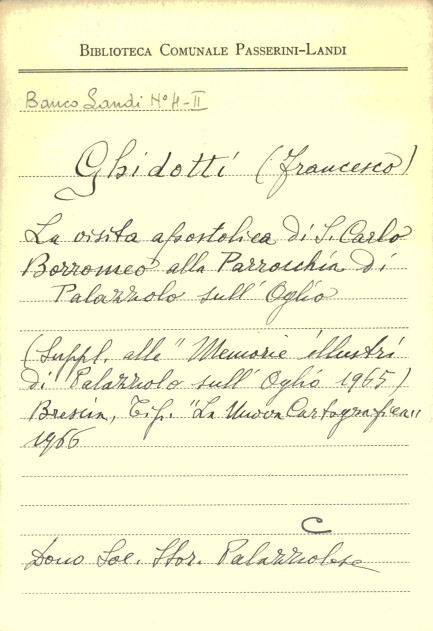 BIBLIOTECA COMUNALE PASSERINI-LANDI
Banco Landi N° 4-II
Ghidotti (Francesco)
La visita apostolica di S. Carlo
Borromeo alla Parrocchia di
Palazzolo sull'Oglio
(Suppl. alle "Memorie illustri
di Palazzolo sull'Oglio 1965)
Brescia, Tip. "La Nuova Cartografica"
1966
C
Dono Soc. Stor. Palazzolese